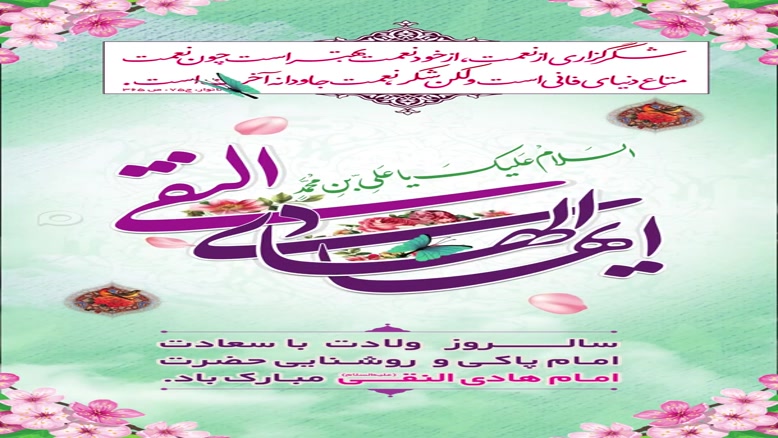 شکرگزاری از نعمت، از خود نعمت بهتر است چون نعمت
متاع دنیای فانی است ولکن شکر نعمت جاودانه آخرت است.
ج۷۵، ص ۳۶۵
السلام علیک یا علی بن محمد
ایها الهادی النقی
سالروز ولادت با سعادت
امام پاکی و روشنایی حضرت
امام هادی النقی (علیه‌السلام) مبارک باد.